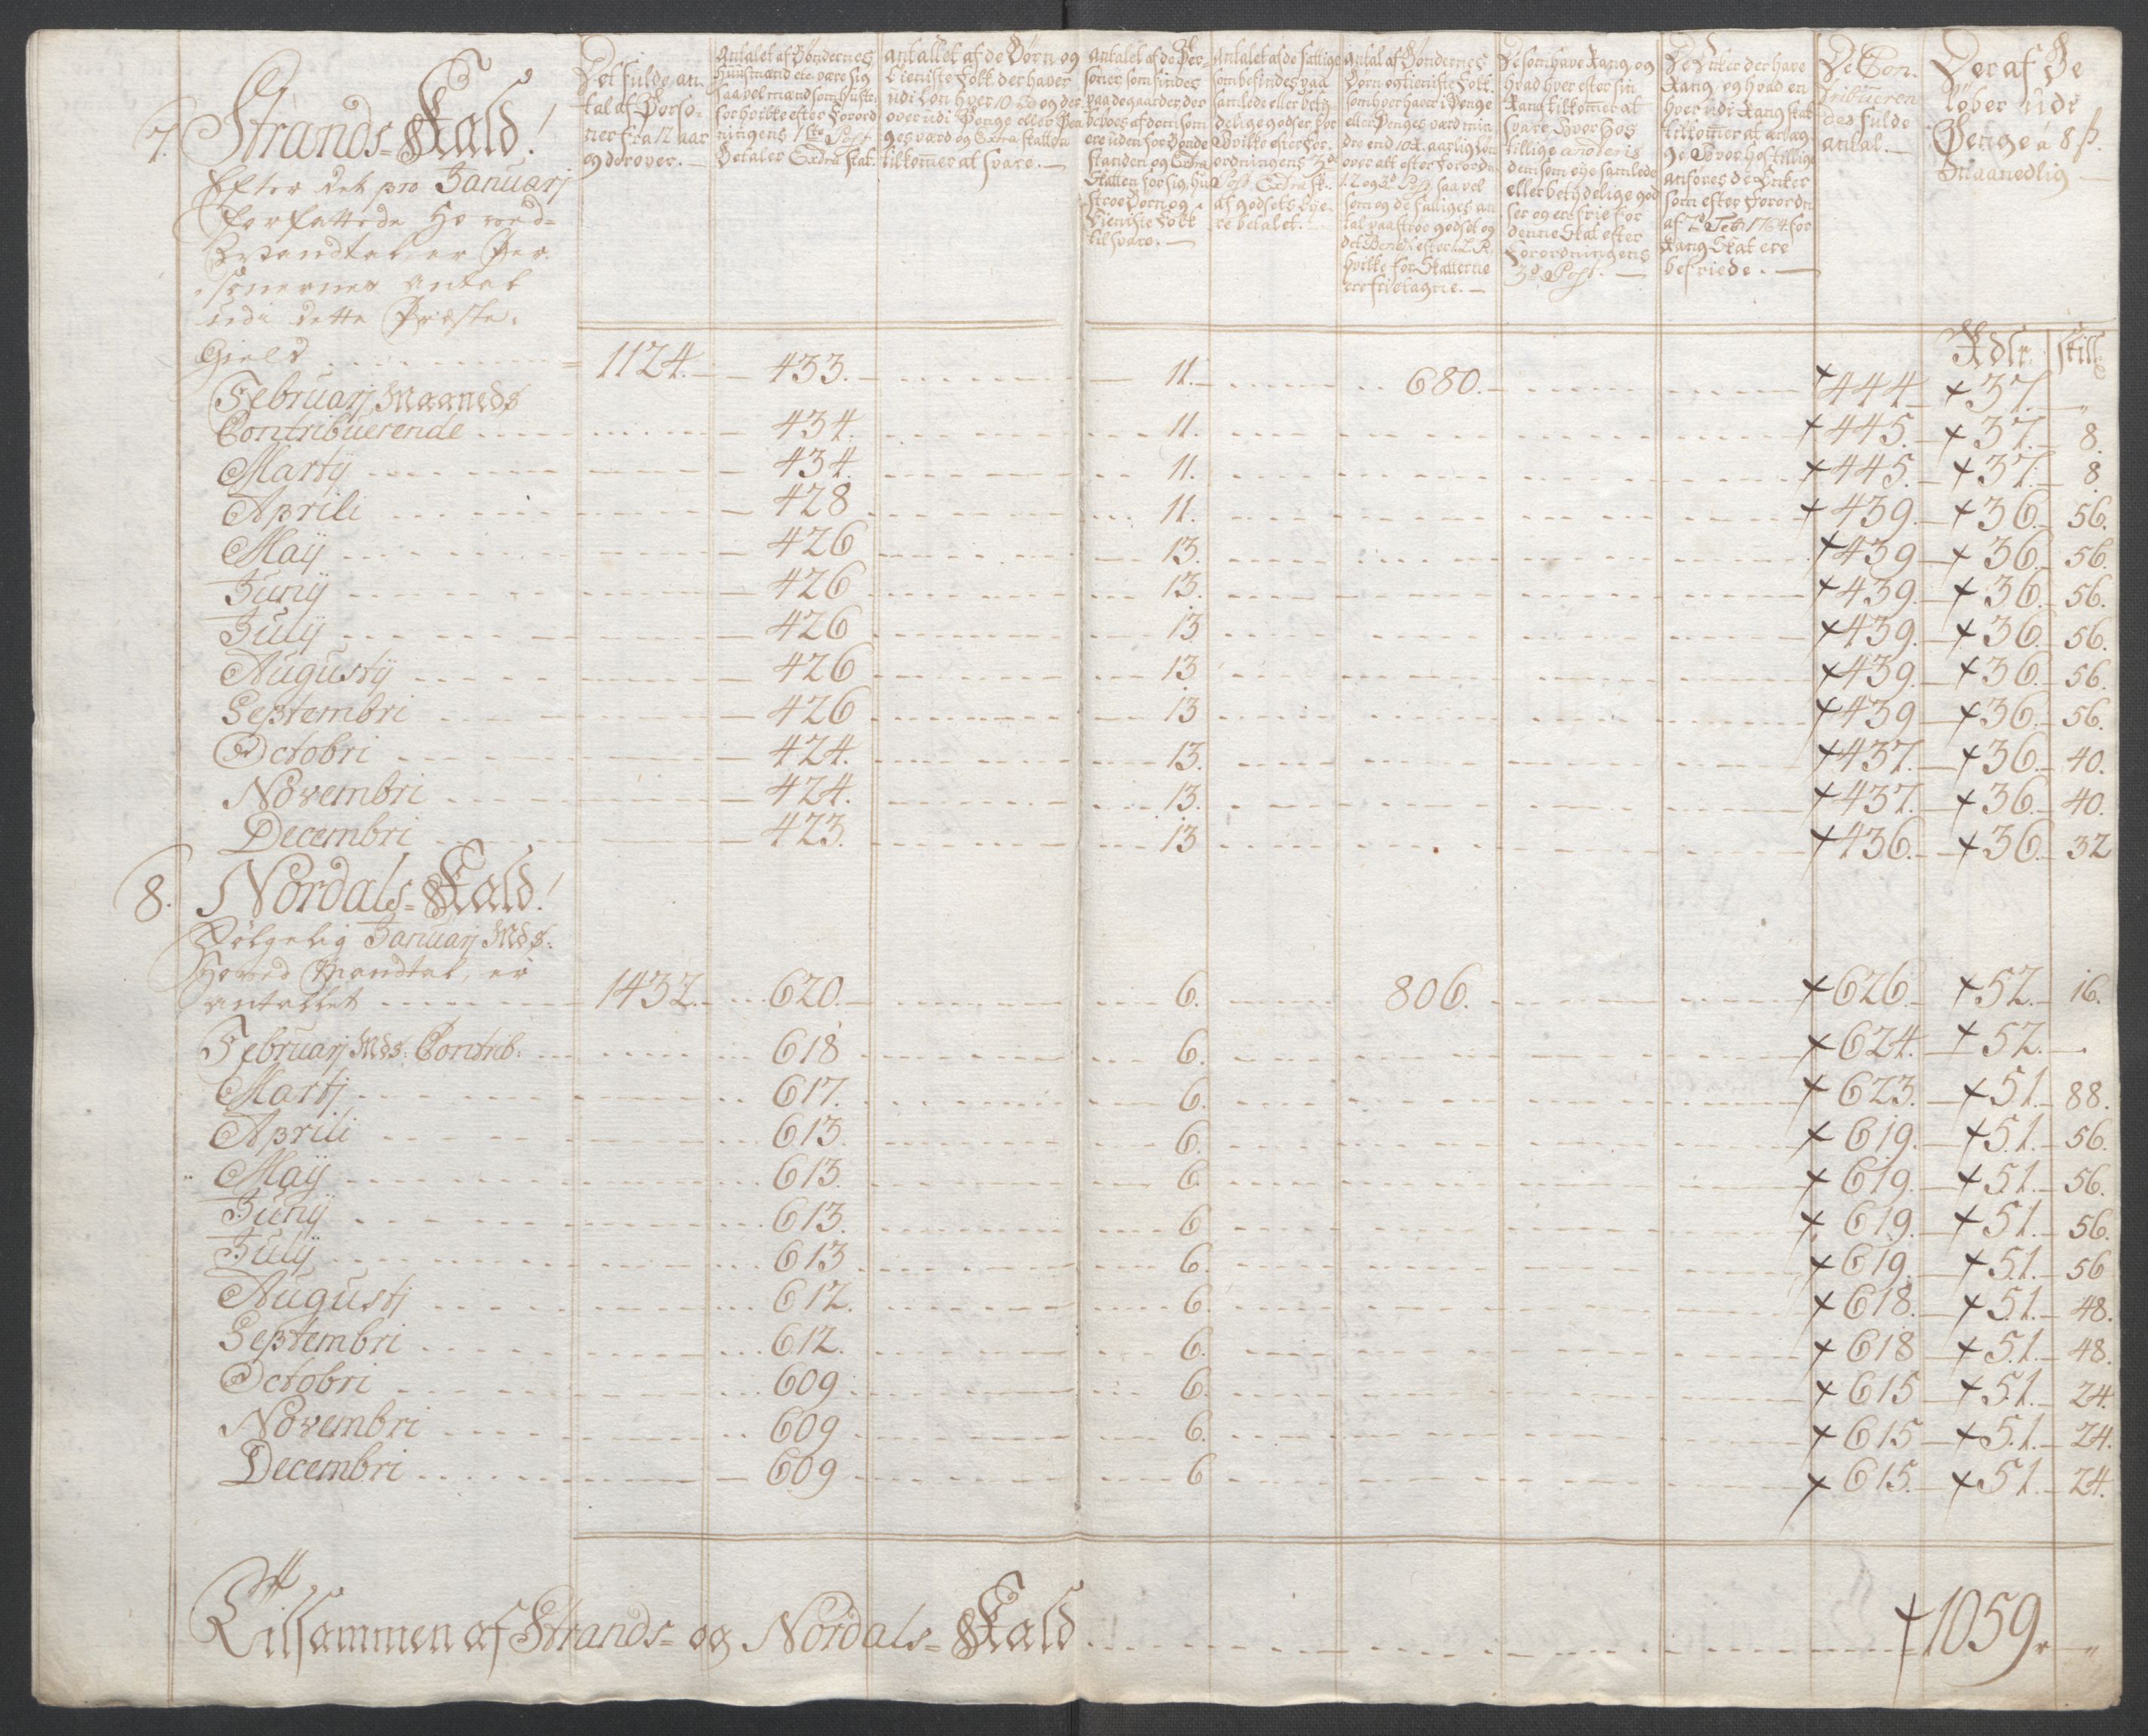 Det fulde an-
tal af Perso-
ner fra 12 aar
og derover.
Antalet af Bøndernes
Huusmænd etc. være sig
saavel mænd som hustr:
for hvilke efter Forord
ningens 1ste Post
Betaler Extra Skat.
Antallet af de Børn og
Tieniste Folk der haver
udi Løn hver 10 Rd og der
over udi Penge eller Pen
ges værd og Extra Skatten
tilkomer at svare.
Antalet af de Per-
soner som findes
paa de gaarder der
beboes af dem som
ere uden for Bonde
standen og Extra
Skatten for sig, Hu
stroe Børn og
Tieniste Folk
til svare.
Antalet af de fattige
som befindes paa
samlede eller bety-
delige godser for
hvilke efter For-
ordningens 3d
Post Extra Sk.
af godsets Eye-
re betalet.
Antal af Bøndernes
Børn og Tieniste Folk
som hver haver i Penge
eller Penges værd min
dre end 10 R. aarlig Løn
over alt efter Forordn
1. 2 og 3d Post saavel
som og de fattiges an
tal paa strøe godset og
det Benef. efter L. R.
hvilke for Skatterne
ere fritagne.
De som have Rang og
hvad hver efter sin
Rang tilkomer at
svare Hvor hos
tillige anføris
dem som eye samlede
eller betydelige god
ser og ere frie for
denne Skat efter
Forordningens
3d Post.
De Enker der have
Rang, og hvad en
hver udi Rang Skat
tilkomer at erlæg
ge Hvor hos tillige
anføres de Enker
som efter Forordn
af 7d Febr 1764 for
Rang Skat ere
befriede.
De Con-
tribueren
des fulde
antal.
Deraf Be
løber udi
Penge a 8 ß.
Maanedlig
7. Strands-Kald!
Efter det pro Januarj
forfattede Hoved-
Mandtal er Per-
sonernes antal
udi dette Præste-
Rdlr. skill:
Gield 1124. 433. 11. 680. 444 37. „
Februarj Maaneds
Contribuerende 434. 11. 445. 37. 8.
Martij 434. 11. 445. 37. 8
Aprili 428 11. 439. 36. 56.
Maij 426 13. 439 36. 56.
Junij 426 13. 439. 36. 56.
Julij 426 13 439. 36. 56.
Augustij 426 13 439. 36. 56.
Septembri 426 13 439 36. 56.
Octobri 424. 13. 437. 36. 40.
Novembri 424. 13. 437. 36. 40.
Decembri 423. 13 436. 36. 32
8. Nordals-Kald!
Følgelig Januarj Mds:
Hoved Mandtal, er
antallet 1432. 620. 6. 806. 626. 52. 16.
Februarj Mds: Contrib: 618 6. 624. 52.
Martj 617. 6. 623. 51. 88.
Aprili 613. 6. 619. 51. 56.
Maij 613. 6. 619. 51. 56.
Junij 613. 6 619. 51. 56.
Julij 613 6. 619. 51. 56
Augustj 612. 6. 618. 51. 48.
Septembri 612. 6. 618 51. 48.
Octobri 609 6. 615 51. 24.
Novembri 609 6. 615 51. 24.
Decembri 609 6 615. 51. 24.
Tilsammen af Strands- og Nordals-Kald 1059. „